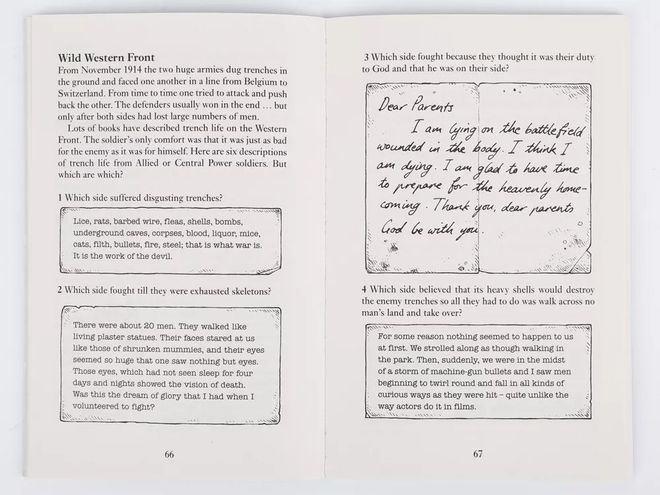 Wild Western Front
From November 1914 the two huge armies dug trenches in
the ground and faced one another in a line from Belgium to
Switzerland. From time to time one tried to attack and push
back the other. The defenders usually won in the end … but
only after both sides had lost large numbers of men.
Lots of books have described trench life on the Western
Front. The soldier's only comfort was that it was just as bad
for the enemy as it was for himself. Here are six descriptions
of trench life from Allied or Central Power soldiers. But
which are which?
1 Which side suffered disgusting trenches?
Lice, rats, barbed wire, fleas, shells, bombs,
underground caves, corpses, blood, liquor, mice,
cats, filth, bullets, fire, steel; that is what war is.
It is the work of the devil.
2 Which side fought till they were exhausted skeletons?
There were about 20 men. They walked like
living plaster statues. Their faces stared at us
like those of shrunken mummies, and their eyes
seemed so huge that one saw nothing but eyes.
Those eyes, which had not seen sleep for four
days and nights showed the vision of death.
Was this the dream of glory that I had when I
volunteered to fight?
66
3 Which side fought because they thought it was their duty
to God and that he was on their side?
Dear Parents
I am lying on the battlefield
wounded in the body. I think I
am dying. I am glad to have time
to prepare for the heavenly home-
coming. Thank you, dear parents
God be with you.
4 Which side believed that its heavy shells would destroy
the enemy trenches so all they had to do was walk across no
man's land and take over?
For some reason nothing seemed to happen to us
at first. We strolled along as though walking in
the park. Then, suddenly, we were in the midst
of a storm of machine-gun bullets and I saw men
beginning to twirl round and fall in all kinds of
curious ways as they were hit – quite unlike the
way actors do it in films.
67